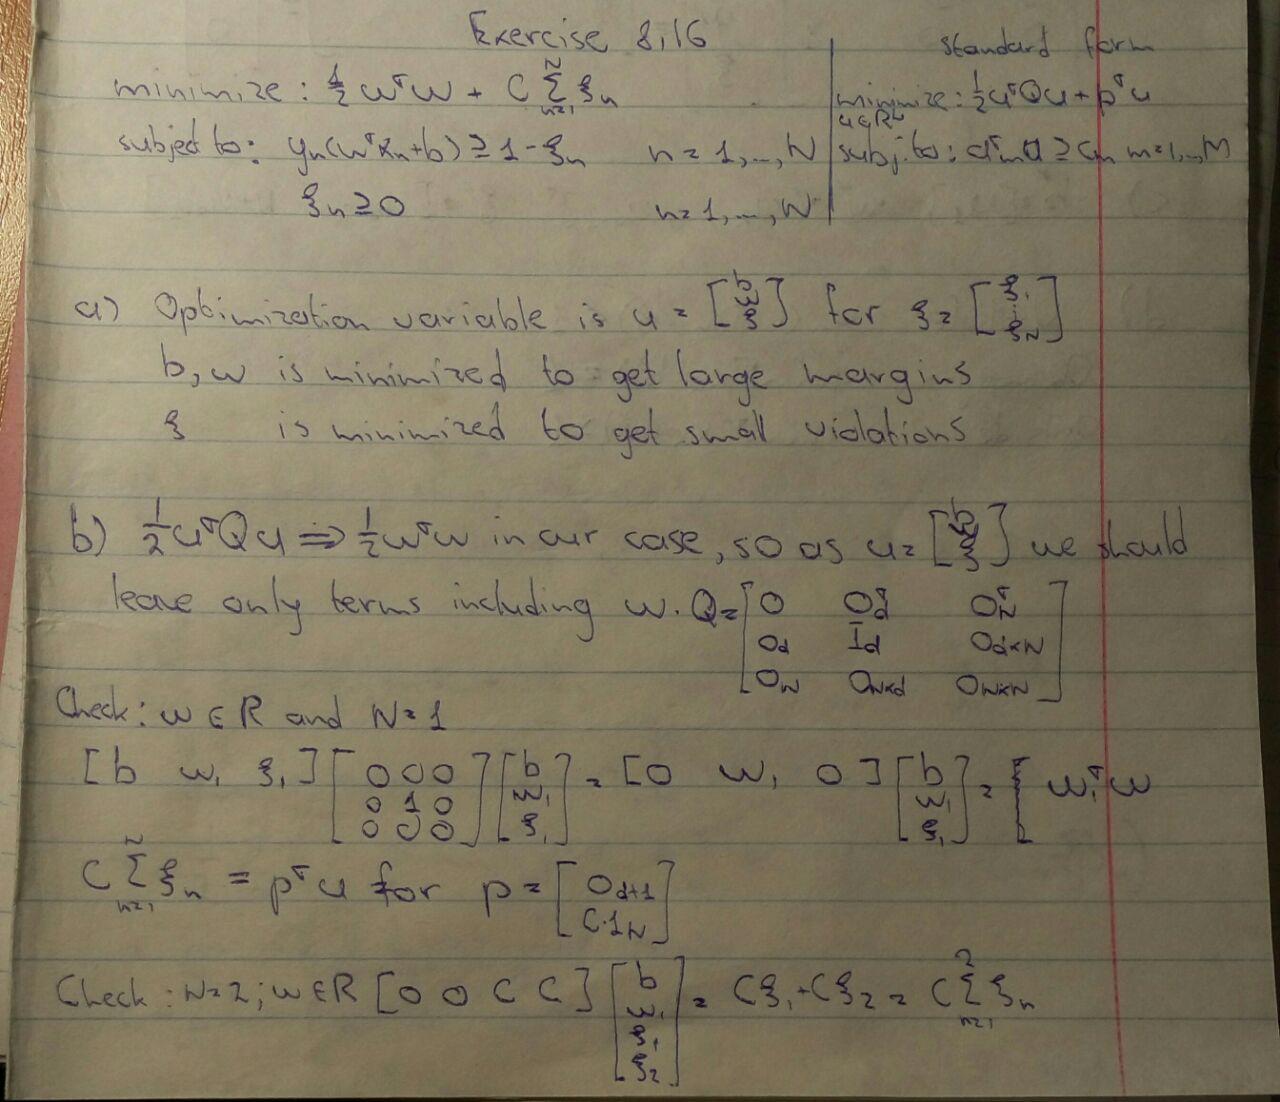 Exercise 8.16
minimize: ½ wᵀw + C Σₙ₌₁ᴺ ξₙ
subject to: yₙ(wᵀxₙ+b) ≥ 1-ξₙ   n = 1,...,N
ξₙ ≥ 0   n = 1,...,N
standard form
minimize: ½uᵀQu + pᵀu
u∈Rᴸ
subj. to: aᵀₘu ≥ cₘ m=1,..,M
a) Optimization variable is u = [b w ξ] for ξ = [ξ₁ ⋮ ξN]
b, w is minimized to get large margins
ξ is minimized to get small violations
b) ½uᵀQu ⇒ ½wᵀw in our case, so as u = [b w ξ] we should
leave only terms including w. Q = [0 0ᵀd 0ᵀN
0d Id 0d×N
0N 0N×d 0N×N]
Check: w ∈ R and N = 1
[b w₁ ξ₁] [0 0 0; 0 1 0; 0 0 0] [b w₁ ξ₁] = [0 w₁ 0] [b w₁ ξ₁] = w₁ᵀw
C Σₙ₌₁ᴺ ξₙ = pᵀu for p = [0d+1 C·1N]
Check: N=2; w∈R [0 0 C C] [b w₁ ξ₁ ξ₂] = Cξ₁+Cξ₂ = C Σₙ₌₁² ξₙ